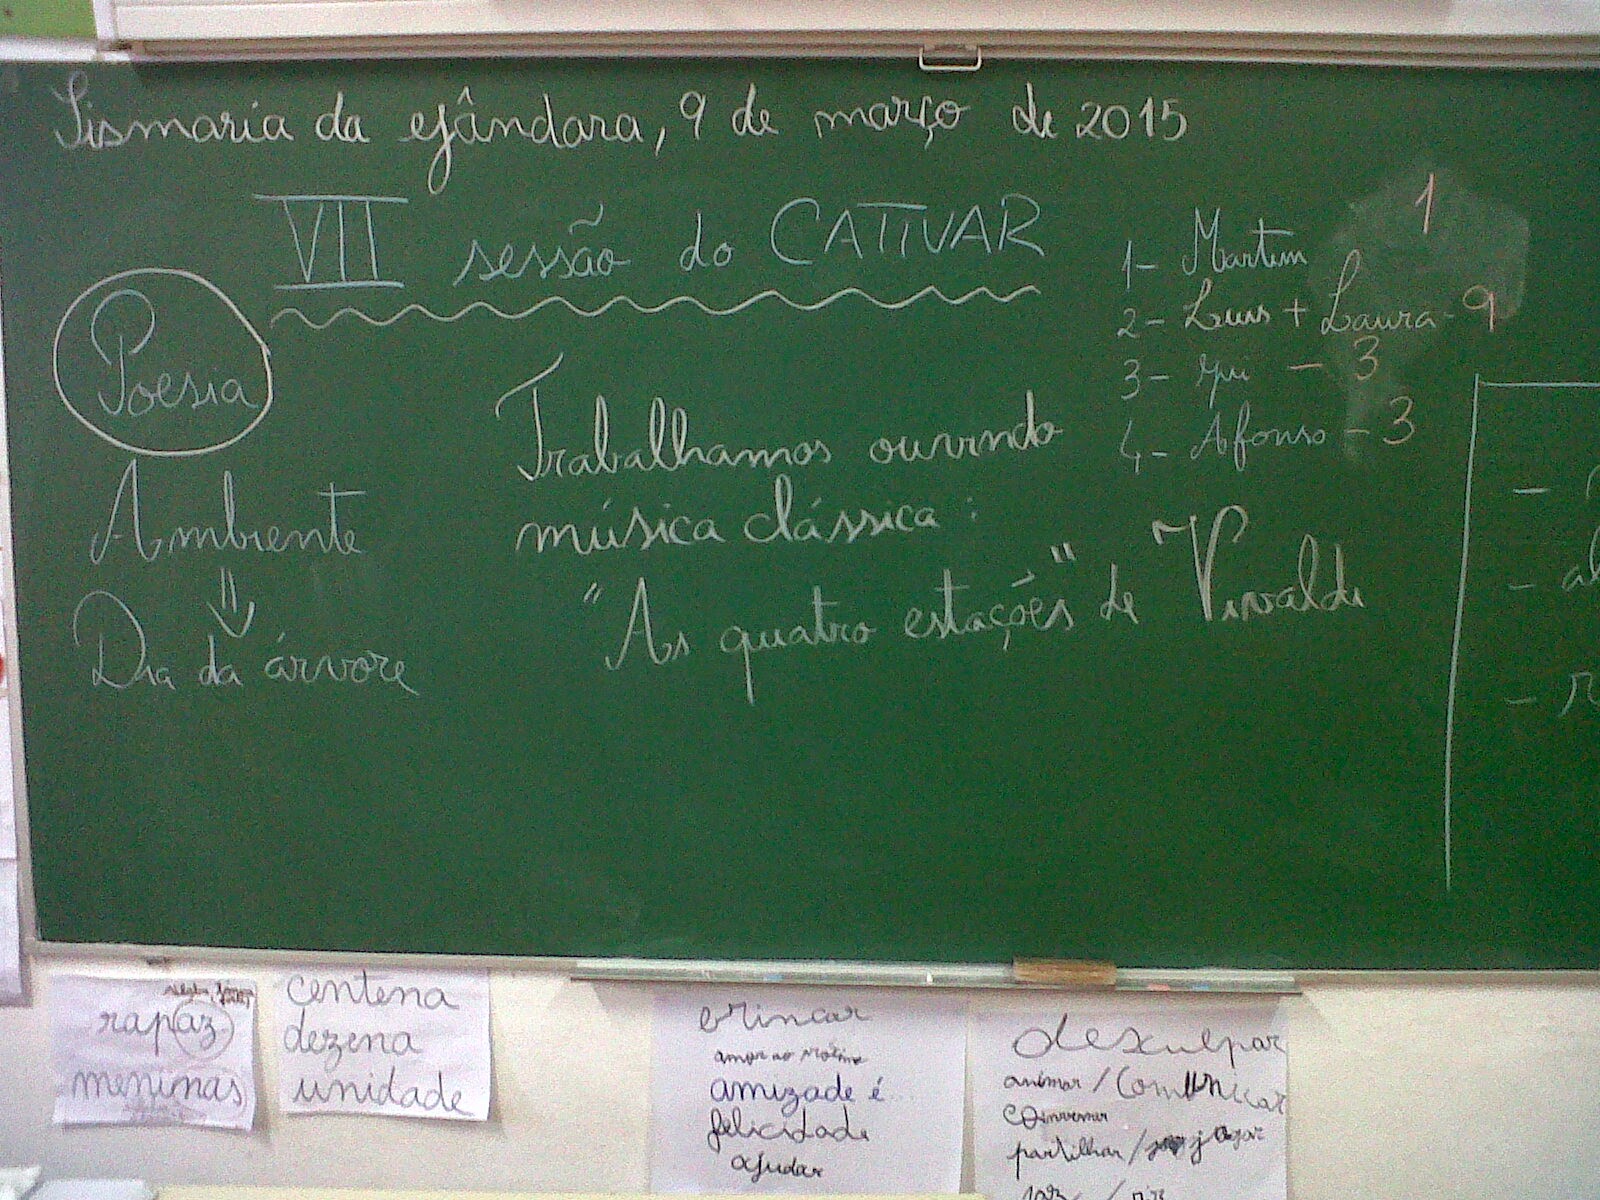 Sismaria da Gândara, 9 de março de 2015
VII sessão do CATIVAR
Poesia
Ambiente
Dia da árvore
Trabalhamos ouvindo
música clássica:
"As quatro estações" de Vivaldi
1
1- Martim
2- Luís + Laura - 9
3- - 3
4- Afonso - 3
-
- al
- r
rapaz
meninas
centena
dezena
unidade
brincar
amor ao
amizade é
felicidade
ajudar
desculpar
animar / comunicar
conversar
partilhar / jogar